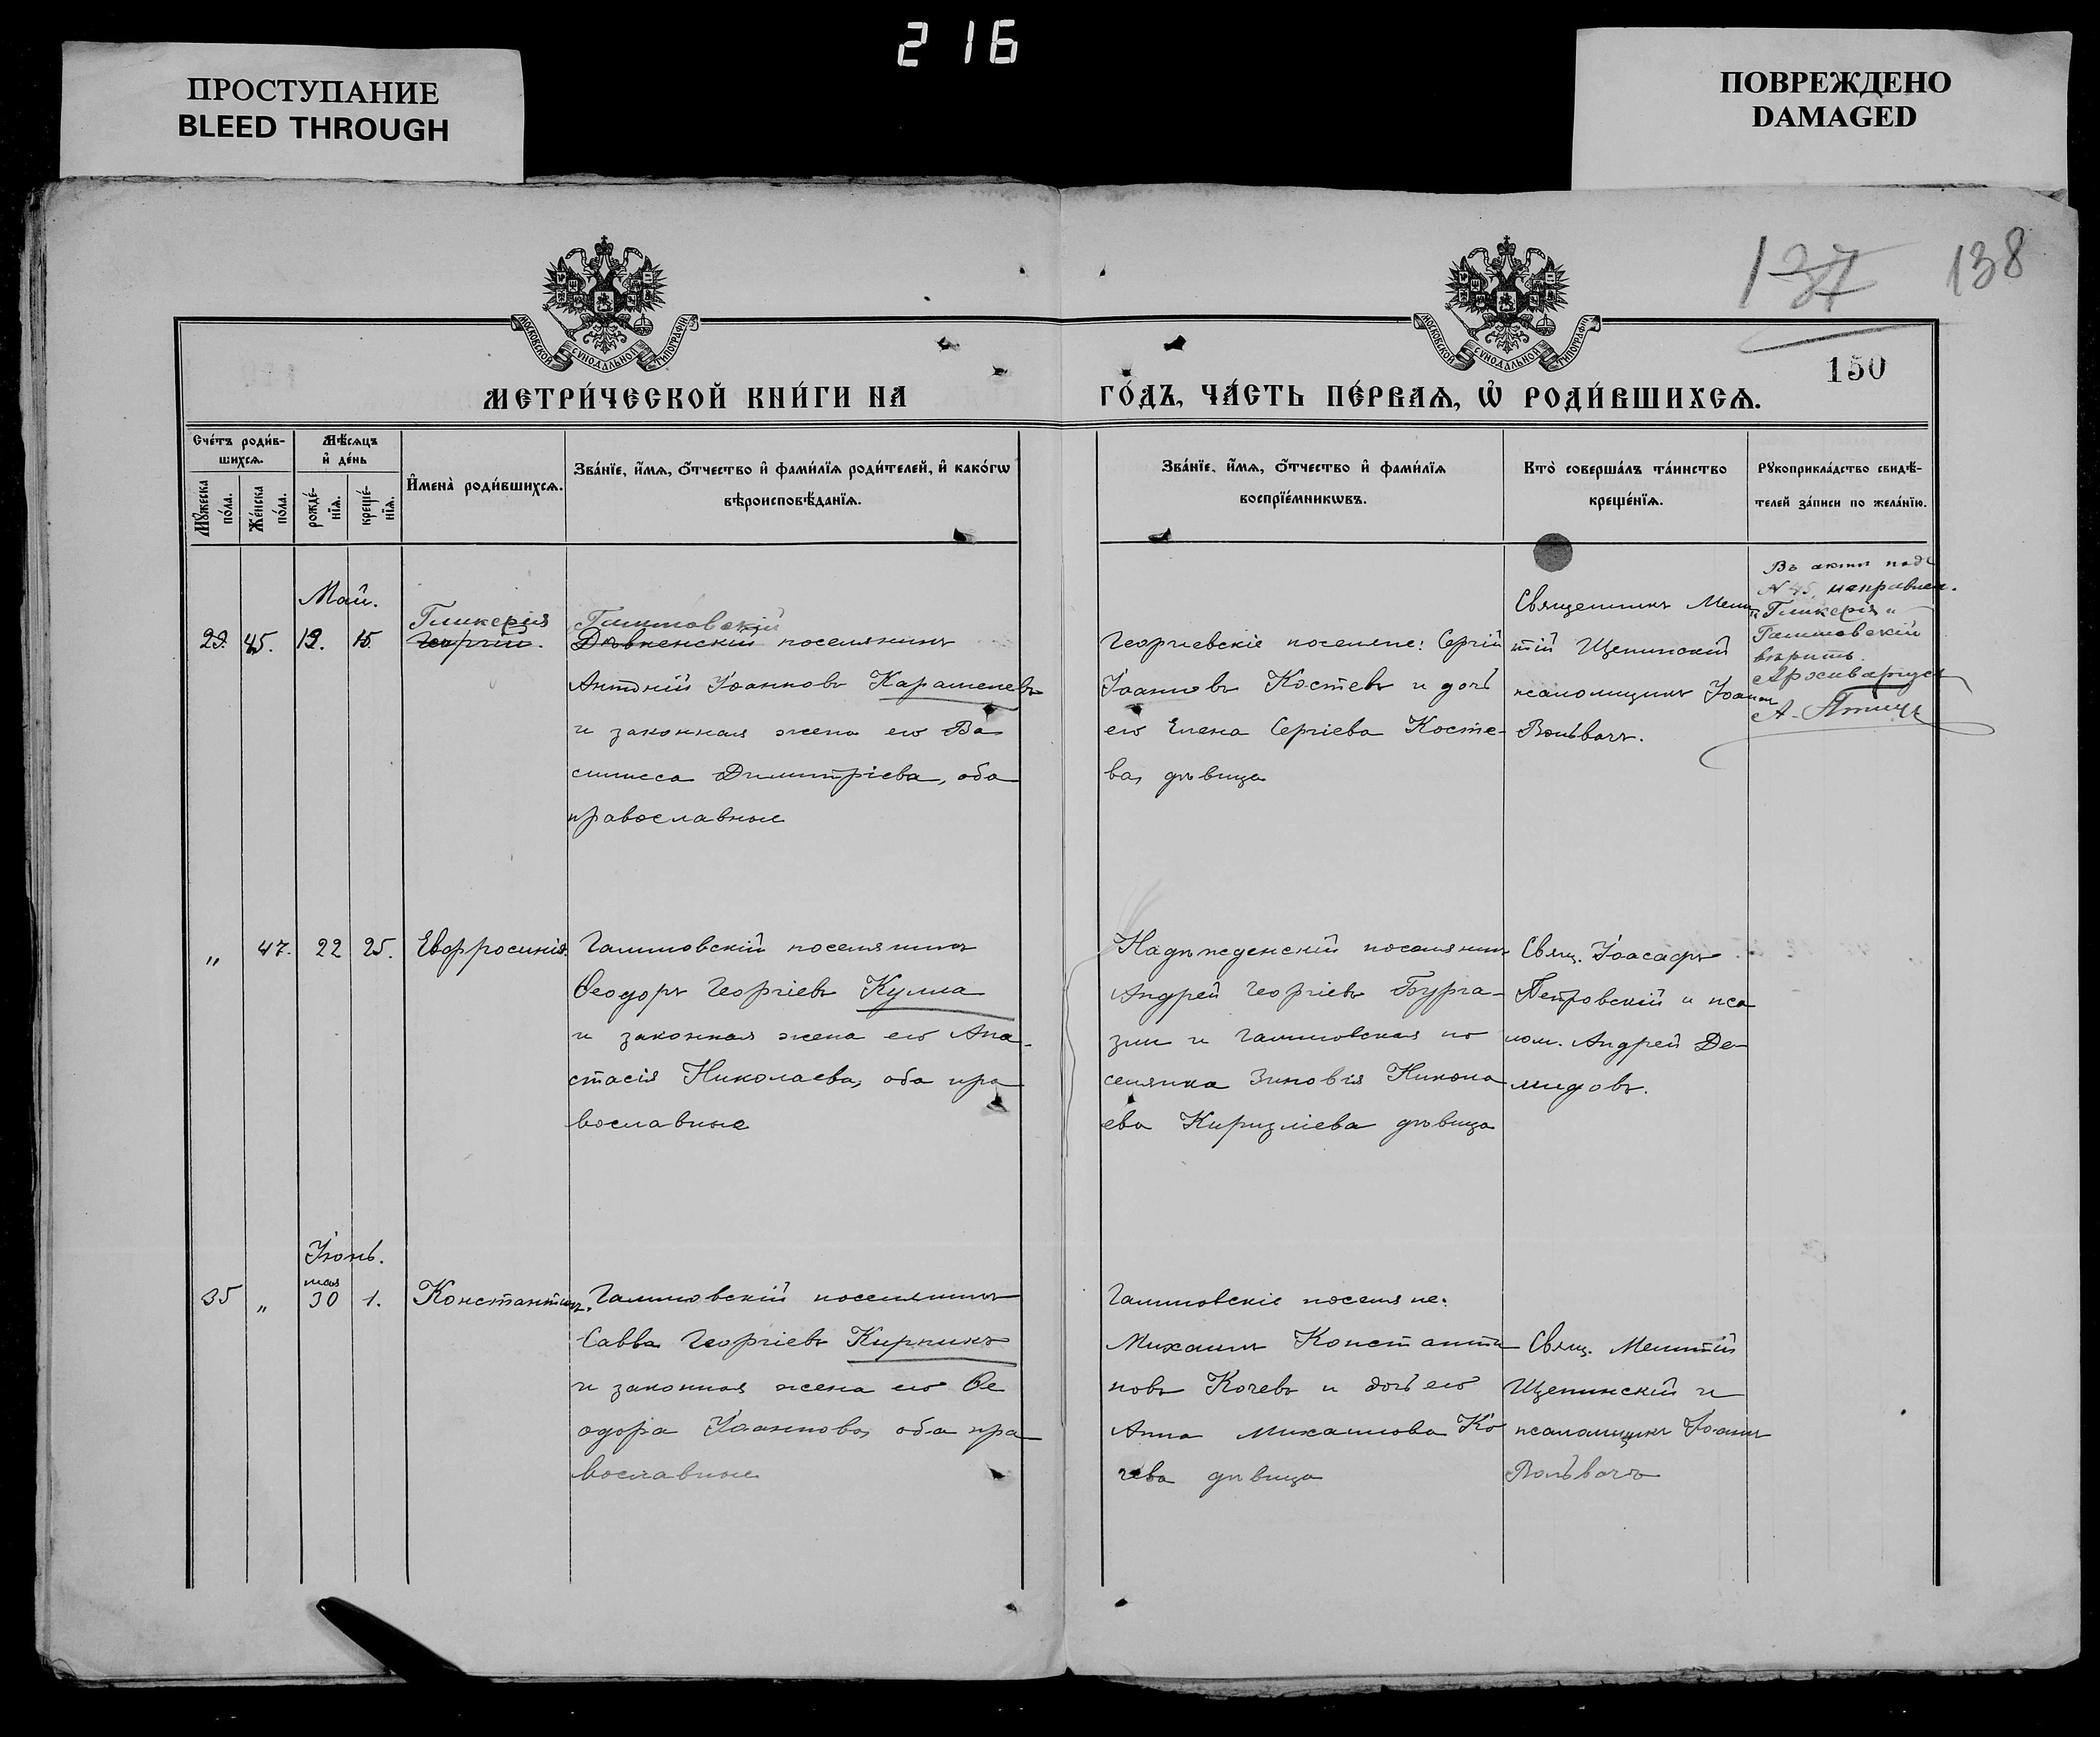 216
ПРОСТУПАНИЕ
BLEED THROUGH
ПОВРЕЖДЕНО
DAMAGED
137 138
150
МОСКОВСКОЙ СѴНОДАЛЬНОЙ ТИПОГРАФІИ
МОСКОВСКОЙ СѴНОДАЛЬНОЙ ТИПОГРАФІИ
МЕТРИ́ЧЕСКОЙ КНИ́ГИ НА
ГО́ДЪ, ЧА́СТЬ ПЕ́РВАѦ, Ѡ҆ РОДИ́ВШИХСѦ.
Сче́тъ роди́в-
шихсѧ.
Мꙋ́жеска
по́ла.
Же́нска
по́ла.
Мѣ́сѧцъ
и҆ де́нь
рожде́-
нїѧ.
креще́-
нїѧ.
И҆мена̀ роди́вшихсѧ.
Зва́нїе, и҆́мѧ, ѻ҆́тчество и҆ фами́лїѧ роди́телей, и҆ како́гѡ
вѣроисповѣ́данїѧ.
Зва́нїе, и҆́мѧ, ѻ҆́тчество и҆ фами́лїѧ
воспрїе́мникѡвъ.
Кто̀ соверша́лъ та́инство
креще́нїѧ.
Рꙋкоприкла́дство свидѣ́-
телей за́писи по жела́нїю.
Май.
29. 45. 12. 15.
Гликерія
Георгій.
Галицовскій
поселянинъ
Антоній Іоанновъ
и законная жена его Ва
силисса Димитріева, оба
православные
Георгіевскіе поселяне: Сергій
Іоанновъ Костевъ и дочь
его Елена Сергіева Косте-
ва, дѣвица
Священникъ Меле
тій Щепинскій
псаломщикъ Іоаннъ
Вольвачъ.
Въ актѣ подъ
N 45. исправлен.
"Гликерія"
вѣрить.
А.
" 47. 22 25. Евфросинія.
Галицовскій поселянинъ
Ѳеодоръ Георгіевъ Кулла
и законная жена его Ана-
стасія Николаева, оба пра
вославные
Надѣжденскій поселянинъ
Андрей Георгіевъ Бурга-
зли и галицовская по
селянка Зиновія Никола
ева дѣвица
Свящ. Іоасафъ
Петровскій и пса
лом. Андрей Де-
мидовъ.
Іюнь.
мая
35 " 30 1. Константинъ.
Галицовскій поселянинъ
Савва Георгіевъ
и законная жена его Ѳе
одора Іоаннова, оба пра
вославные
Галицовскіе поселяне:
Михаилъ Константи
новъ Кочевъ и дочь его
Анна Михаилова Ко
чева дѣвица
Свящ. Мелетій
Щепинскій и
псаломщикъ Іоаннъ
Вольвачъ